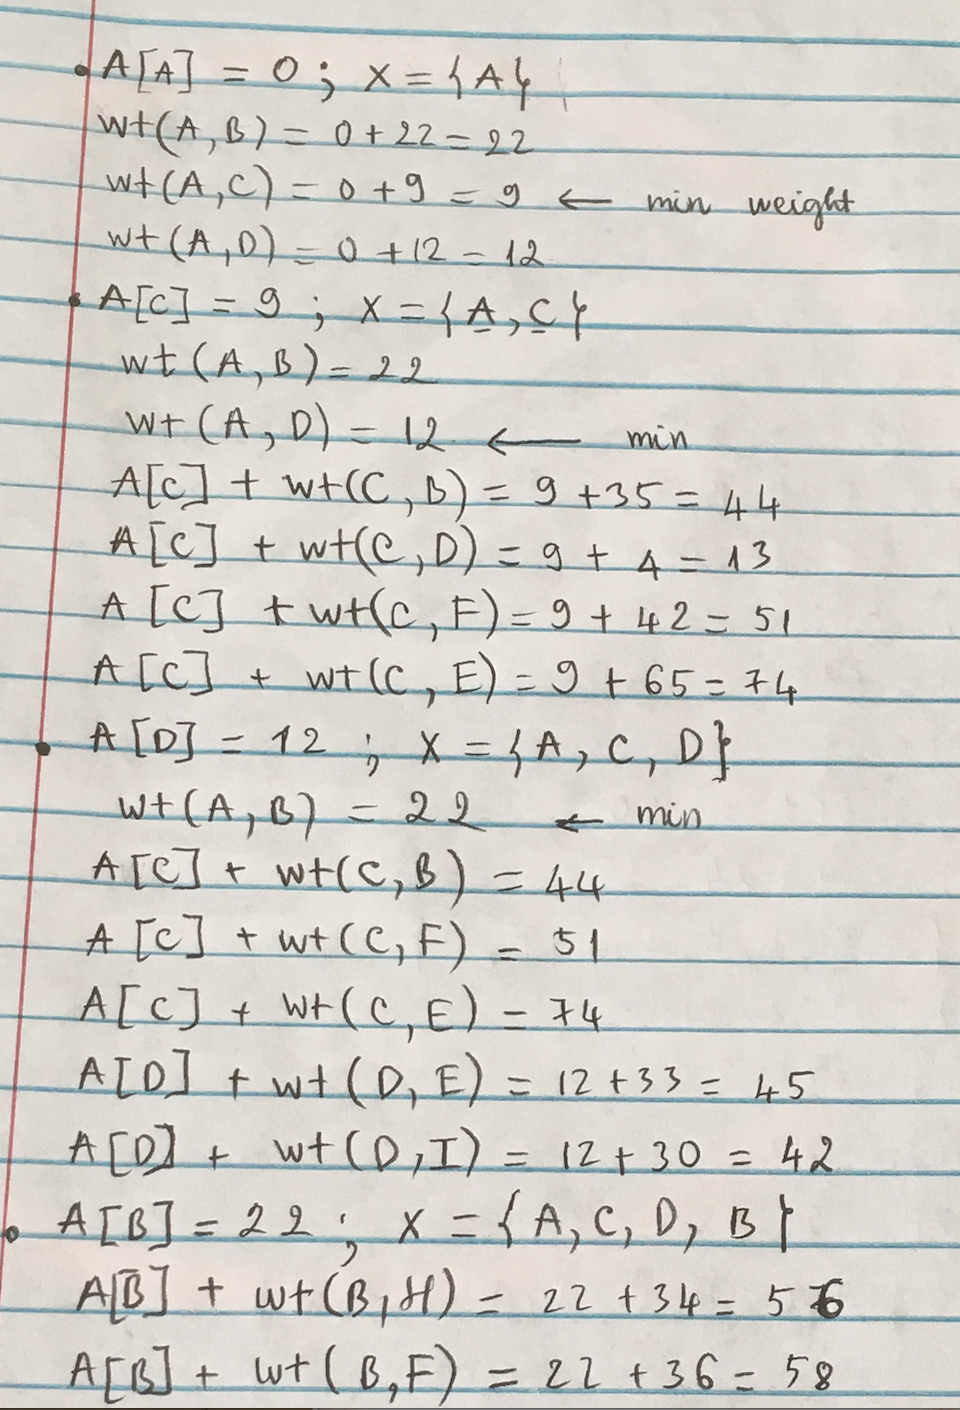 • A[A] = 0 ; X = {A}
wt(A,B) = 0+22 = 22
wt(A,C) = 0+9 = 9 ← min weight
wt(A,D) = 0+12 = 12
• A[C] = 9 ; X = {A,C}
wt(A,B) = 22
wt(A,D) = 12 ← min
A[C] + wt(C,B) = 9+35 = 44
A[C] + wt(C,D) = 9 + 4 = 13
A[C] + wt(C,F) = 9 + 42 = 51
A[C] + wt(C,E) = 9 + 65 = 74
• A[D] = 12 ; X = {A, C, D}
wt(A,B) = 22 ← min
A[C] + wt(C,B) = 44
A[C] + wt(C,F) = 51
A[C] + wt(C,E) = 74
A[D] + wt(D,E) = 12+33 = 45
A[D] + wt(D,I) = 12+30 = 42
• A[B] = 22 ; X = {A, C, D, B}
A[B] + wt(B,H) = 22 + 34 = 56
A[B] + wt(B,F) = 22 + 36 = 58